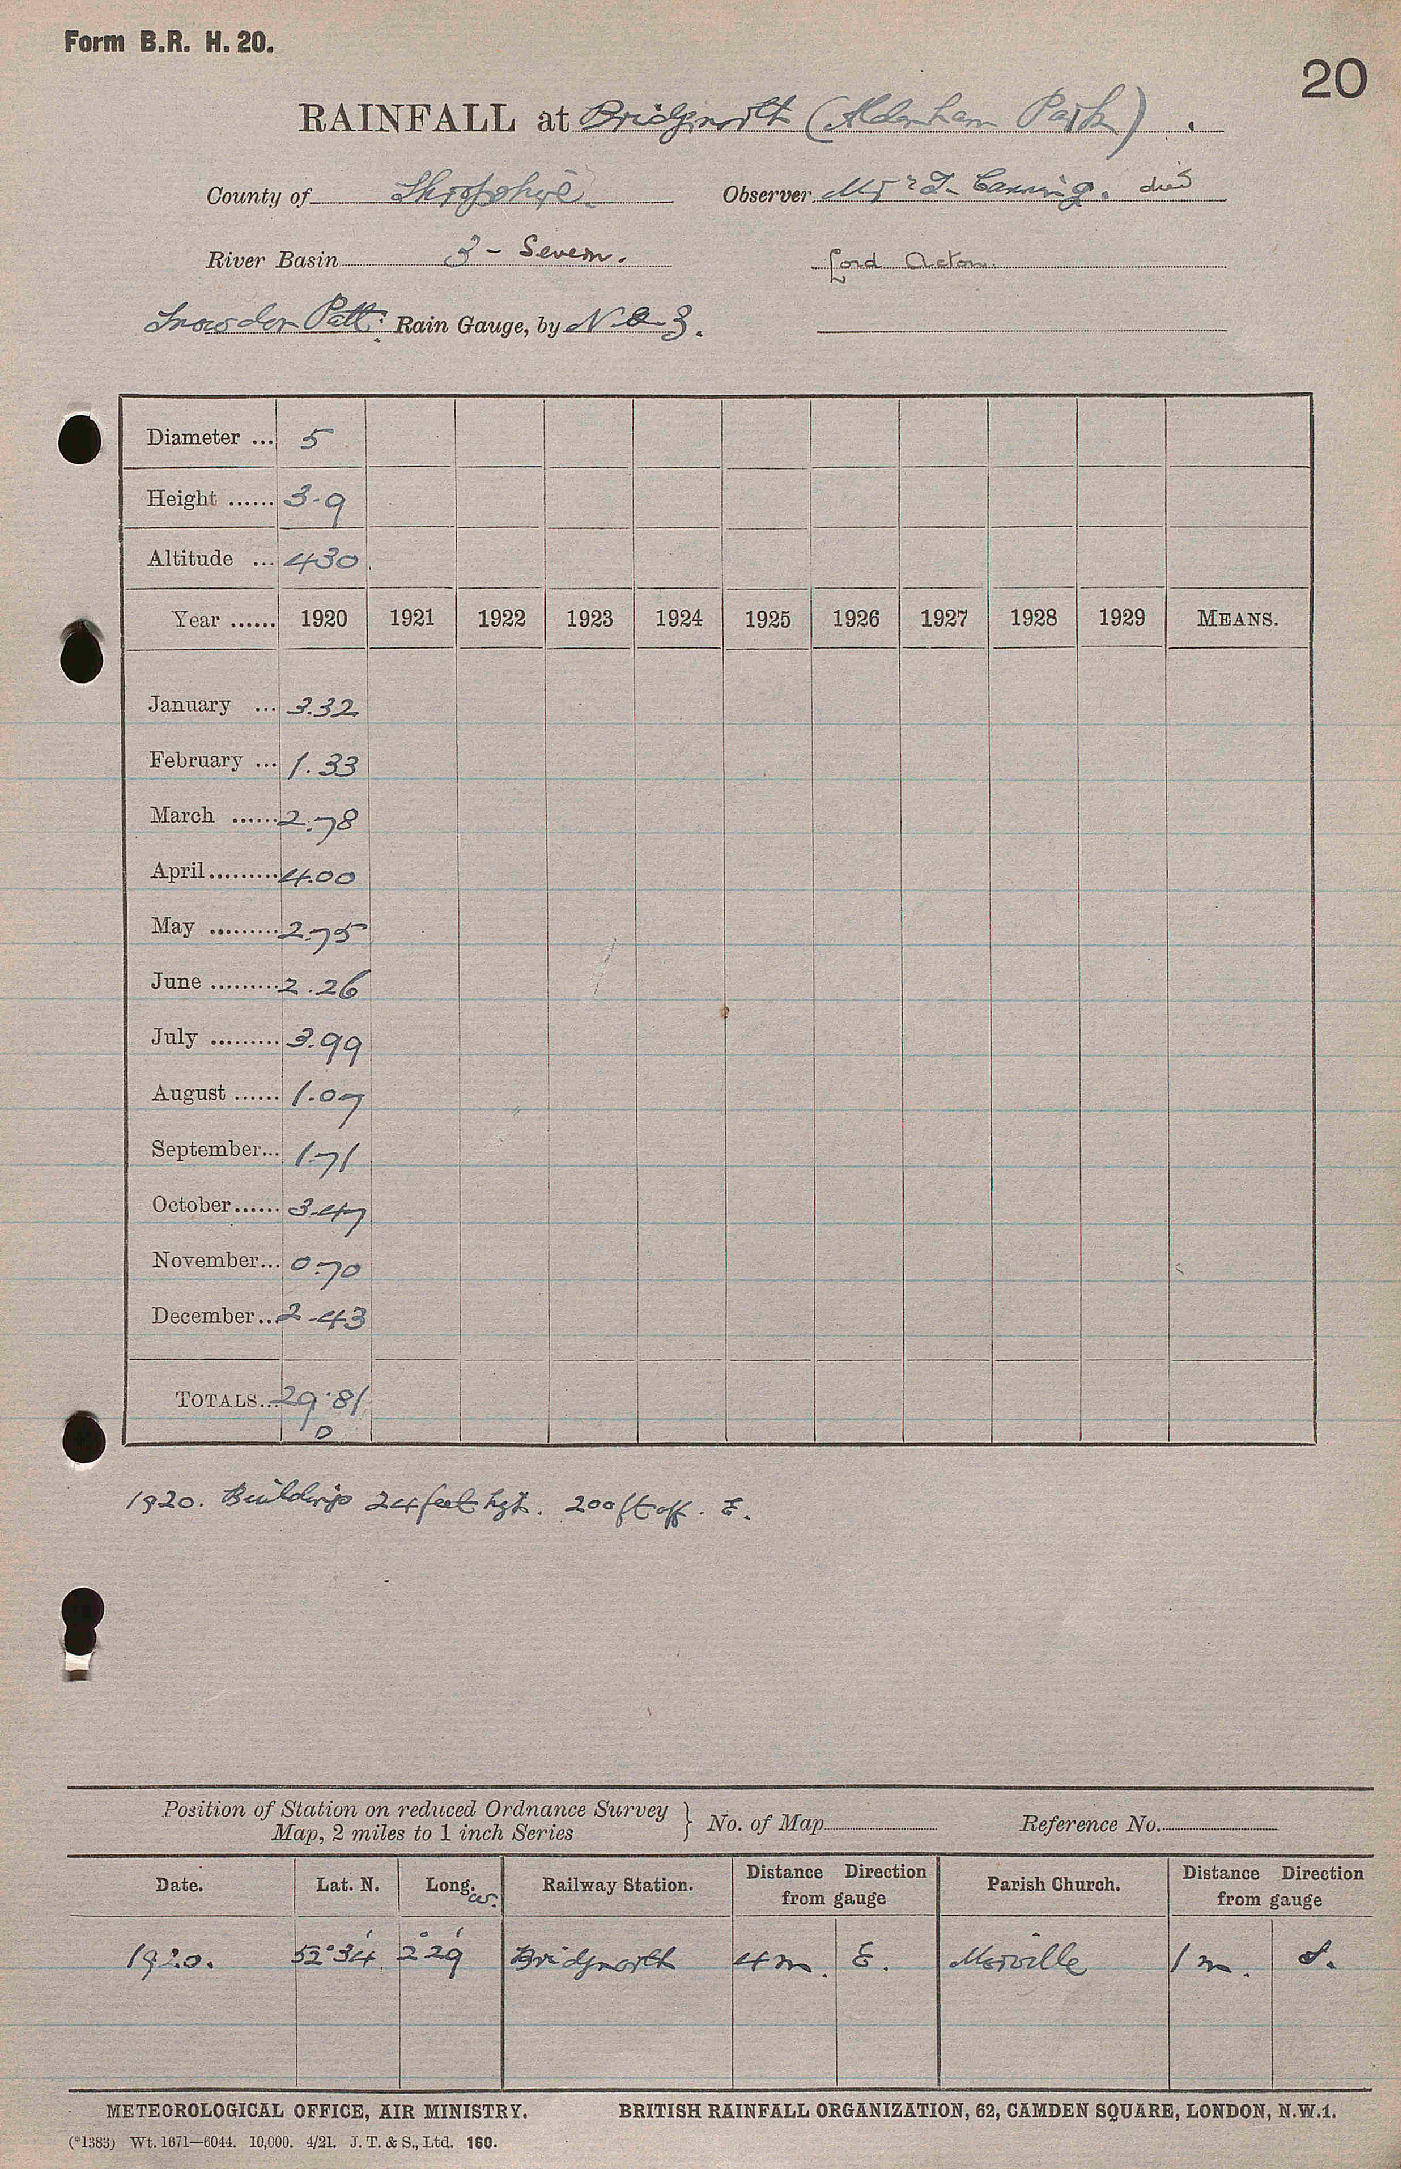 Form B.R. H. 20.
20
RAINFALL at Bridgnorth (Aldenham Park).
County of Shropshire. Observer Mr T. Canning. died
River Basin 3 - Severn. Lord Acton.
Snowdon Patt. Rain Gauge, by N & Z.
Diameter ... 5
Height ...... 3-9
Altitude ... 430
Year ...... 1920 1921 1922 1923 1924 1925 1926 1927 1928 1929 MEANS.
January ... 3.32
February ... 1.33
March ...... 2.78
April ......... 4.00
May ......... 2.75
June ......... 2.26
July ......... 3.99
August ...... 1.07
September... 1.71
October ...... 3.47
November... 0.70
December... 2.43
TOTALS... 29.81
D
1920. Buildings 24 feet hgt. 200 ft off. E.
Position of Station on reduced Ordnance Survey Map, 2 miles to 1 inch Series } No. of Map Reference No.
Date. Lat. N. Long. W. Railway Station. Distance Direction from gauge Parish Church. Distance Direction from gauge
1920. 52° 34' 2° 29' Bridgnorth 4 m. E. Morville 1 m. S.
METEOROLOGICAL OFFICE, AIR MINISTRY. BRITISH RAINFALL ORGANIZATION, 62, CAMDEN SQUARE, LONDON, N.W.1.
(*1383) Wt. 1671—6044. 10,000. 4/21. J. T. & S., Ltd. 160.